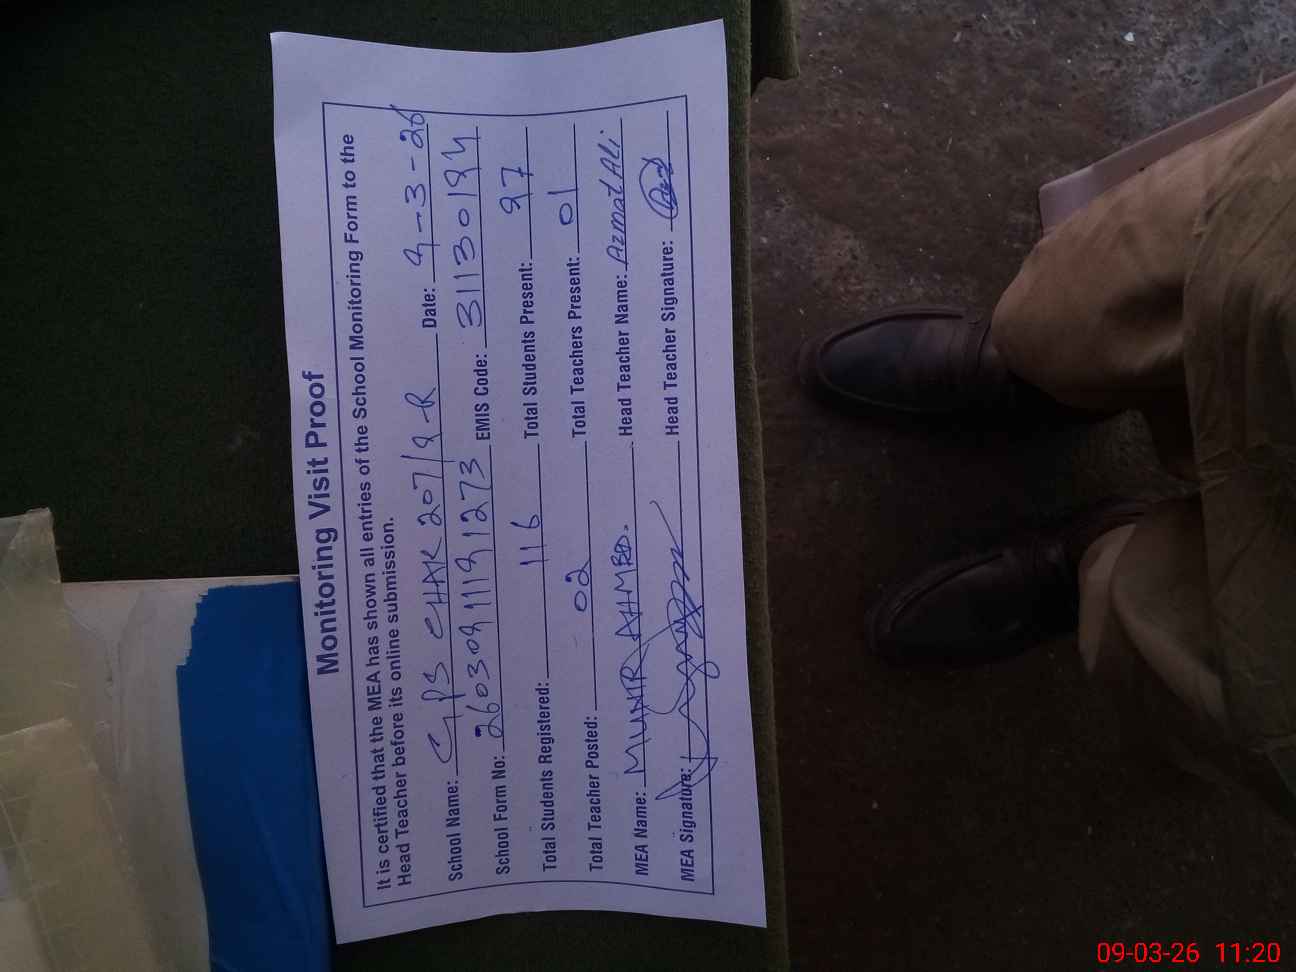 Monitoring Visit Proof
It is certified that the MEA has shown all entries of the School Monitoring Form to the
Head Teacher before its online submission.
School Name: GPS CHAK 207/9-R Date: 9-3-26
School Form No: 26030911191273 EMIS Code: 31130194
Total Students Registered: 116 Total Students Present: 97
Total Teacher Posted: 02 Total Teachers Present: 01
MEA Name: MUNIR AHMED. Head Teacher Name: Azmat Ali
MEA Signature: Head Teacher Signature:
09-03-26 11:20